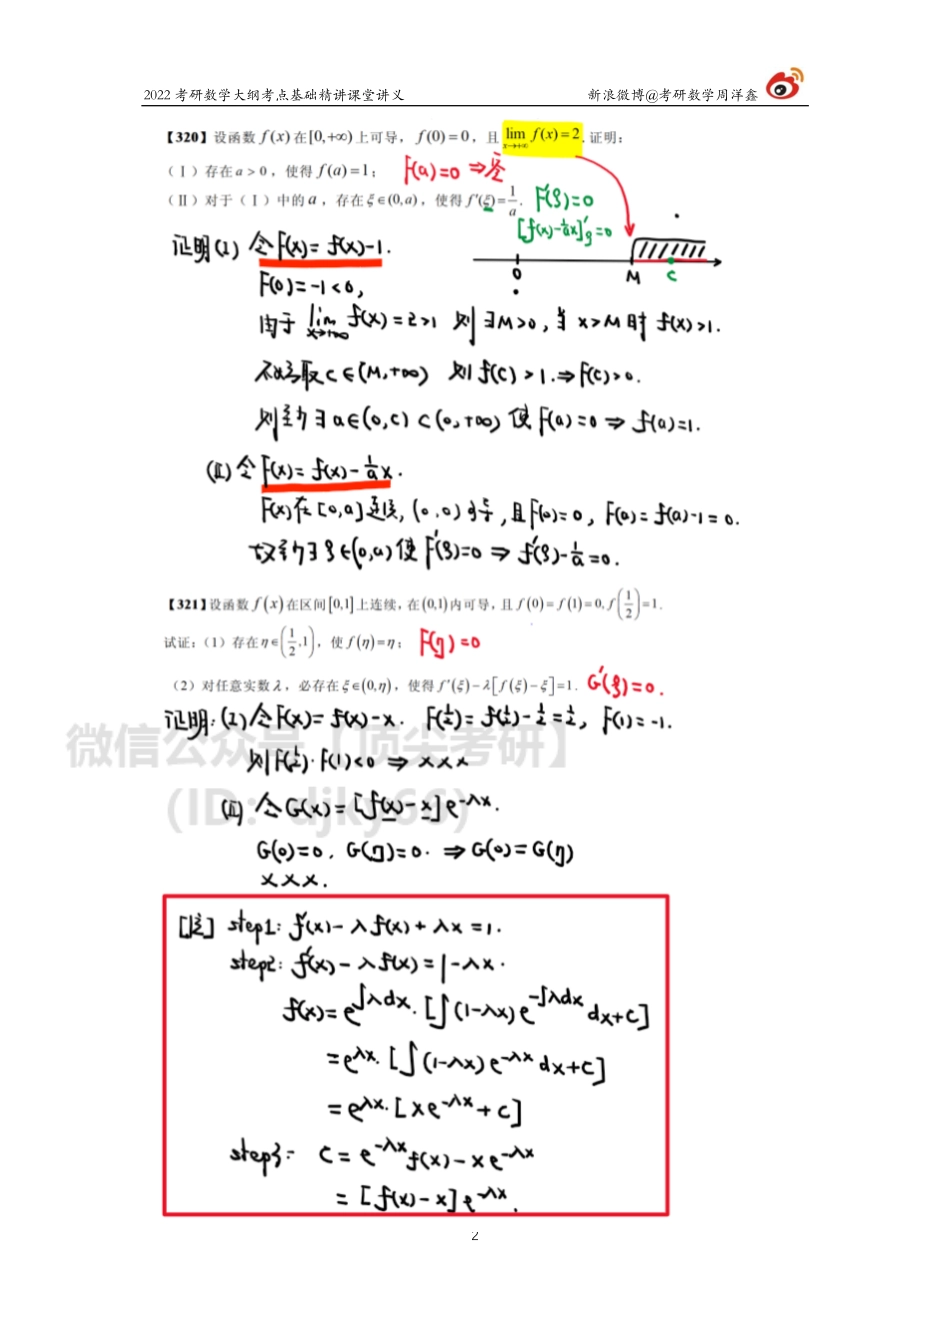 2022 考研数学大纲考点基础精讲课堂讲义 新浪微博@考研数学周洋鑫
【320】设函数 f(x) 在[0,+∞) 上可导，f(0)=0，且 lim_{x→+∞} f(x)=2. 证明：
（Ⅰ）存在 a>0，使得 f(a)=1； F(a)=0 ⇒零
（Ⅱ）对于（Ⅰ）中的 a，存在 ξ∈(0,a)，使得 f'(ξ)=1/a. F'(ξ)=0
[f(x)-1/a x]'_ξ=0
0 M C
证明(I) 令F(x)=f(x)-1.
F(0)=-1<0,
由于 lim_{x→+∞} f(x)=2>1 则∃M>0, 当 x>M时 f(x)>1.
不妨取C∈(M,+∞) 则 f(C)>1.⇒F(C)>0.
则至少∃a∈(0,C)⊂(0,+∞) 使F(a)=0⇒f(a)=1.
(II) 令F(x)=f(x)-1/a x.
F(x)在[0,a]连续, (0,a)可导, 且F(0)=0, F(a)=f(a)-1=0.
故至少∃ξ∈(0,a)使F'(ξ)=0⇒f'(ξ)-1/a=0.
【321】设函数 f(x) 在区间[0,1]上连续，在(0,1)内可导，且 f(0)=f(1)=0, f(1/2)=1.
试证：（1）存在η∈(1/2,1)，使 f(η)=η； F(η)=0
（2）对任意实数λ，必存在ξ∈(0,η)，使得 f'(ξ)-λ[f(ξ)-ξ]=1. G'(ξ)=0.
证明: (I) 令F(x)=f(x)-x. F(1/2)=f(1/2)-1/2=1/2, F(1)=-1.
则F(1/2)·F(1)<0 ⇒ ×××
(II) 令G(x)=[f(x)-x]e^{-λx}.
G(0)=0, G(η)=0. ⇒G(0)=G(η)
×××.
微信公众号【顶尖考研】
(ID: djky66)
[注] step1: f'(x)-λf(x)+λx=1.
step2: f'(x)-λf(x)=1-λx.
f(x)=e^{∫λdx}·[∫(1-λx)e^{-∫λdx}dx+C]
=e^{λx}·[∫(1-λx)e^{-λx}dx+C]
=e^{λx}·[xe^{-λx}+C]
step3: C=e^{-λx}f(x)-xe^{-λx}
=[f(x)-x]e^{-λx}.
2